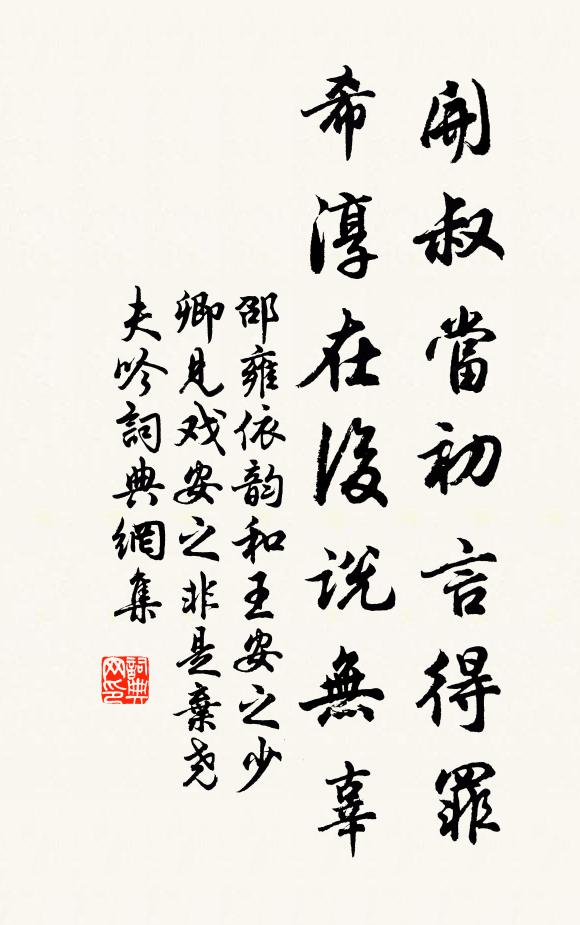 開叔當初言得罪
希淳在後說無辜
邵雍依韵和王安之少
卿見戏安之非是棄尧
夫吟詞典網集
詞典网印